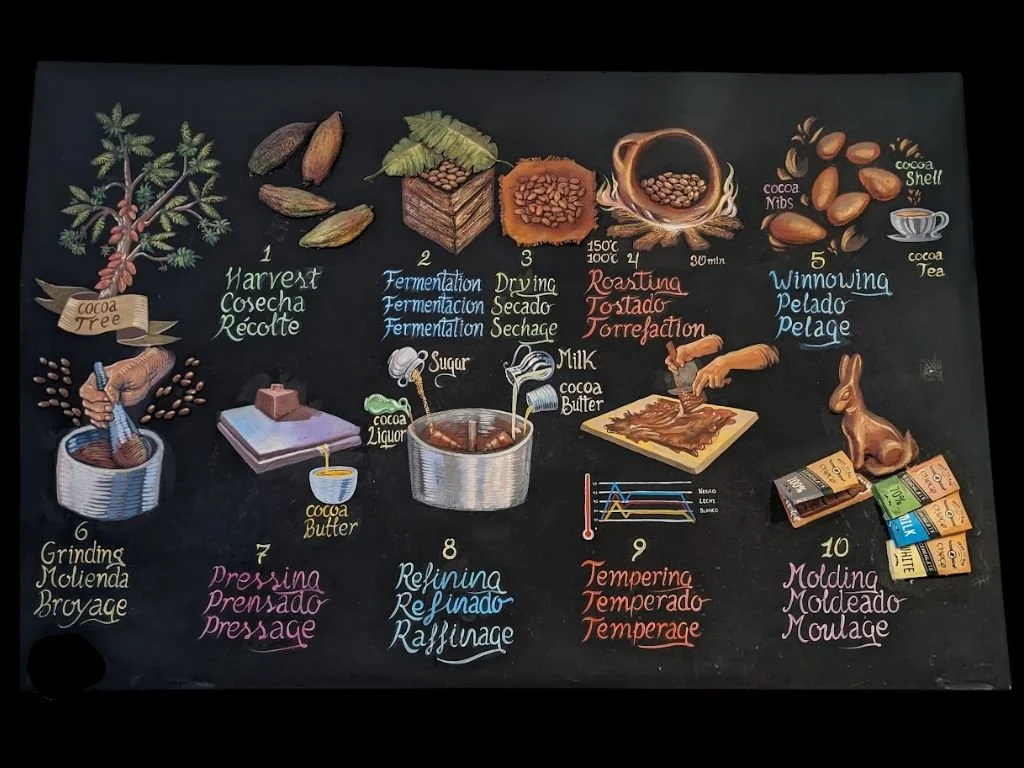 cocoa
Tree
1
Harvest
Cosecha
Récolte
2
Fermentation
Fermentacion
Fermentation
3
Drying
Secado
Sechage
150°C
100°C
4
30min
Roasting
Tostado
Torrefaction
cocoa
Nibs
cocoa
Shell
cocoa
Tea
5
Winnowing
Pelado
Pelage
6
Grinding
Molienda
Broyage
cocoa
Butter
7
Pressing
Prensado
Pressage
Sugar
Milk
cocoa
Liquor
cocoa
Butter
8
Refining
Refinado
Raffinage
NEGRO
LECHE
BLANCO
9
Tempering
Temperado
Temperage
100%
CHOCO
70%
CHOCO
MILK
CHOCO
WHITE
CHOCO
10
Molding
Moldeado
Moulage